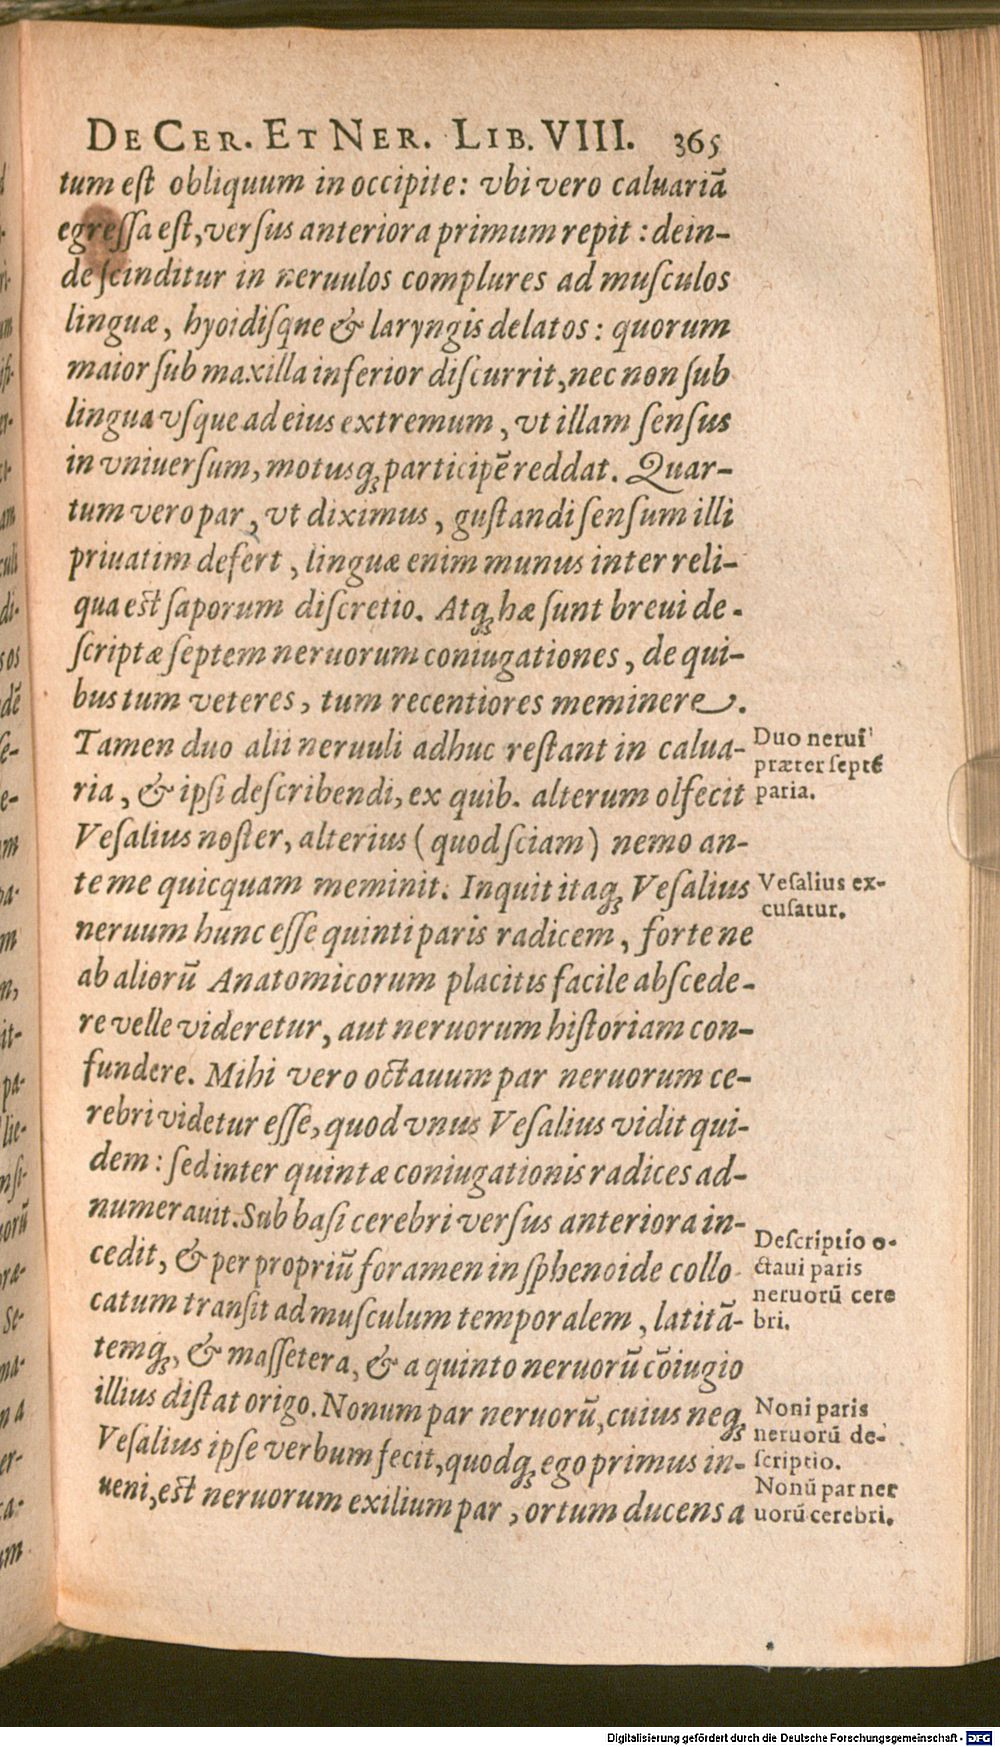 DE CER. ET NER. LIB. VIII. 365
tum eſt obliquum in occipite: vbi vero caluariã
egreſſa eſt, verſus anteriora primum repit: dein-
de ſcinditur in neruulos complures ad muſculos
linguæ, hyoidiſque & laryngis delatos: quorum
maior ſub maxilla inferior diſcurrit, nec non ſub
lingua vſque ad eius extremum, vt illam ſenſus
in vniuerſum, motusq́; participẽ reddat. Quar-
tum vero par, vt diximus, guſtandi ſenſum illi
priuatim defert, linguæ enim munus inter reli-
qua eſt ſaporum diſcretio. Atq; hæ ſunt breui de-
ſcriptæ ſeptem neruorum coniugationes, de qui-
bus tum veteres, tum recentiores meminere.
Tamen duo alii neruuli adhuc reſtant in calua-
ria, & ipſi deſcribendi, ex quib. alterum olfecit
Veſalius noſter, alterius (quod ſciam) nemo an-
te me quicquam meminit. Inquit itaq; Veſalius
neruum hunc eſſe quinti paris radicem, forte ne
ab aliorũ Anatomicorum placitis facile abſcede-
re velle videretur, aut neruorum hiſtoriam con-
fundere. Mihi vero octauum par neruorum ce-
rebri videtur eſſe, quod vnus Veſalius vidit qui-
dem: ſed inter quintæ coniugationis radices ad-
numerauit. Sub baſi cerebri verſus anteriora in-
cedit, & per propriũ foramen in ſphenoide collo
catum tranſit ad muſculum temporalem, latitã-
temq́;, & maſſetera, & a quinto neruorũ cõiugio
illius diſtat origo. Nonum par neruorũ, cuius neq;
Veſalius ipſe verbum fecit, quodq; ego primus in-
ueni, eſt neruorum exilium par, ortum ducens a
Duo neruſ
præter ſeptẽ
paria.
Veſalius ex-
cuſatur.
Deſcriptio o-
ctaui paris
neruorũ cere
bri.
Noni paris
neruorũ de-
ſcriptio.
Nonũ par ner
uorũ cerebri.
Digitalisierung gefördert durch die Deutsche Forschungsgemeinschaft - DFG